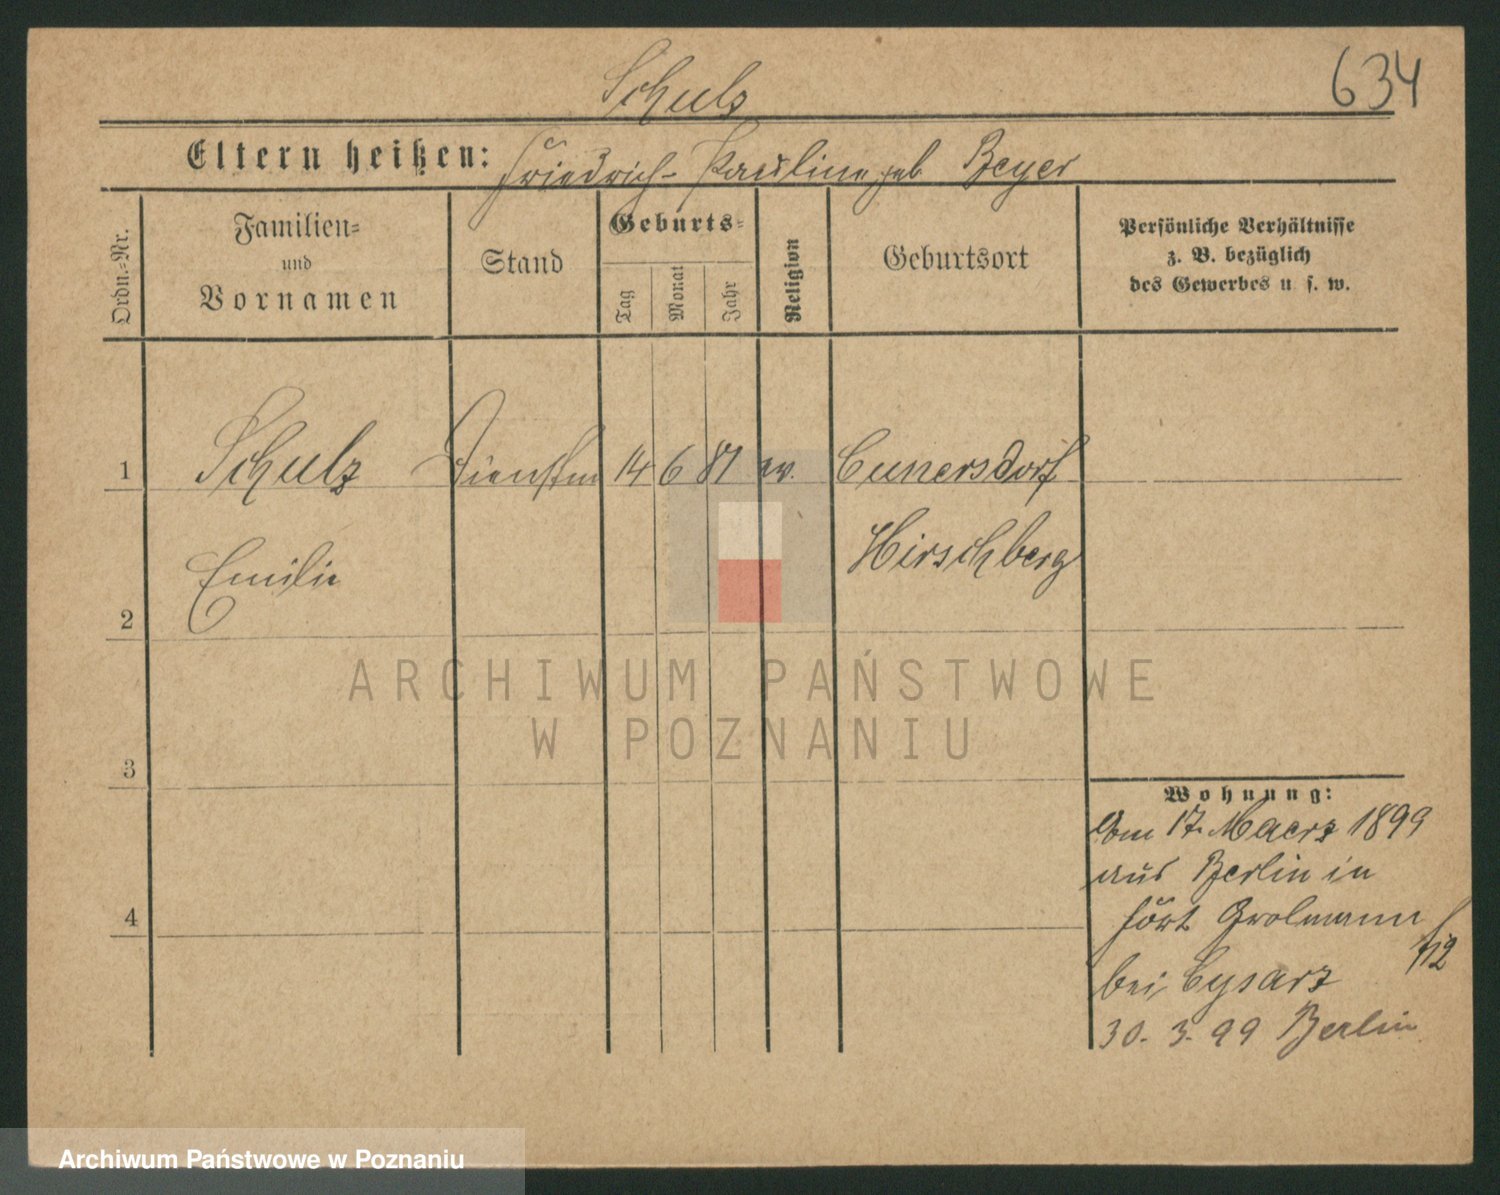 634
Schulz
Eltern heißen: Friedrich - Pauline geb Beyer
Ordn.-Nr.
Familien-
und
Vornamen
Stand
Geburts-
Tag
Monat
Jahr
Religion
Geburtsort
Persönliche Verhältnisse
z. B. bezüglich
des Gewerbes u. s. w.
1 Schulz Dienstm 14 6 81 ev. Cunersdorf
Hirschberg
Emilie
2
3
4
Wohnung:
Am 17. Maerz 1899
aus Berlin in
fort Grolmann
bei Cysarz
30. 3. 99 Berlin
ARCHIWUM PAŃSTWOWE
W POZNANIU
Archiwum Państwowe w Poznaniu